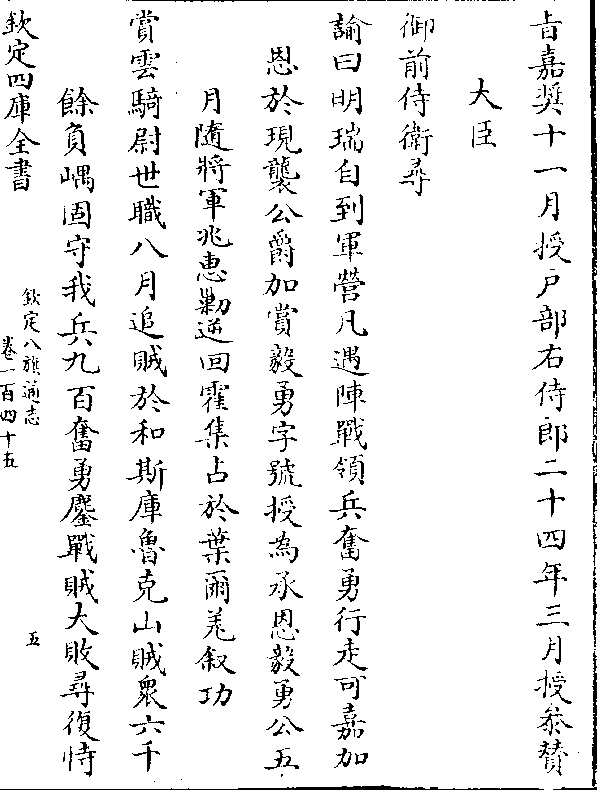 旨嘉奨十一月授户部右侍郎二十四年三月授叅贊
大臣
御前侍衛尋
諭曰明瑞自到軍營凡遇陣戰領兵奮勇行走可嘉加
恩於現襲公爵加賞毅勇字號授為承恩毅勇公五
月隨將軍兆惠勦逆回霍集占於葉爾羌叙功
賞雲騎尉世職八月追賊於和斯庫魯克山賊衆六千
餘負嵎固守我兵九百奮勇鏖戰賊大敗尋復恃
欽定四庫全書
欽定八旗通志
卷一百四十五
五